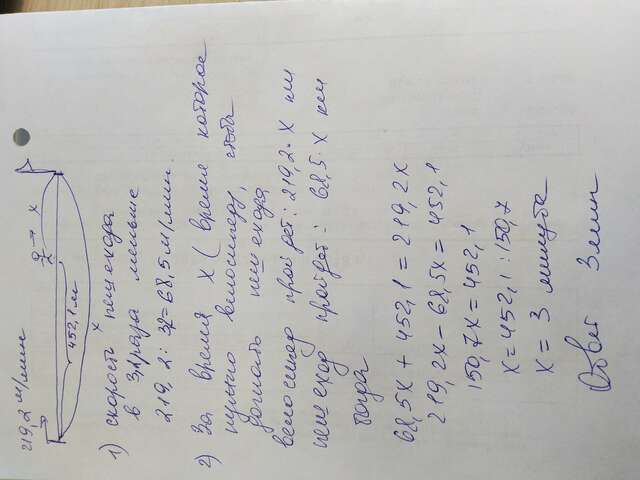 219,2 м/мин
x
452,1 м
1) скорость пешехода
в 3,2 раза меньше
219,2 : 3,2 = 68,5 м/мин.
2) За время X (время которое
нужно велосипеду, чтобы
догнать пешехода
велосипед пройдет: 219,2 · X км
пешеход пройдет: 68,5 · X км
тогда
68,5x + 452,1 = 219,2x
219,2x - 68,5x = 452,1
150,7x = 452,1
x = 452,1 : 150,7
x = 3 минуты
Ответ 3 мин